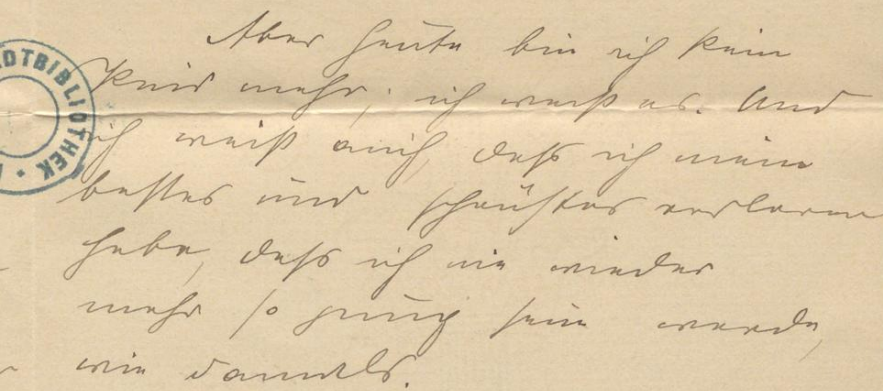 Aber heute bin ich kein
Kind mehr, ich weiß es. Und
ich weiß auch, daß ich mein
bestes und schönstes verloren
habe, daß ich nie wieder
mehr so jung sein werde,
wie damals.
OTBIBLIOTHEK